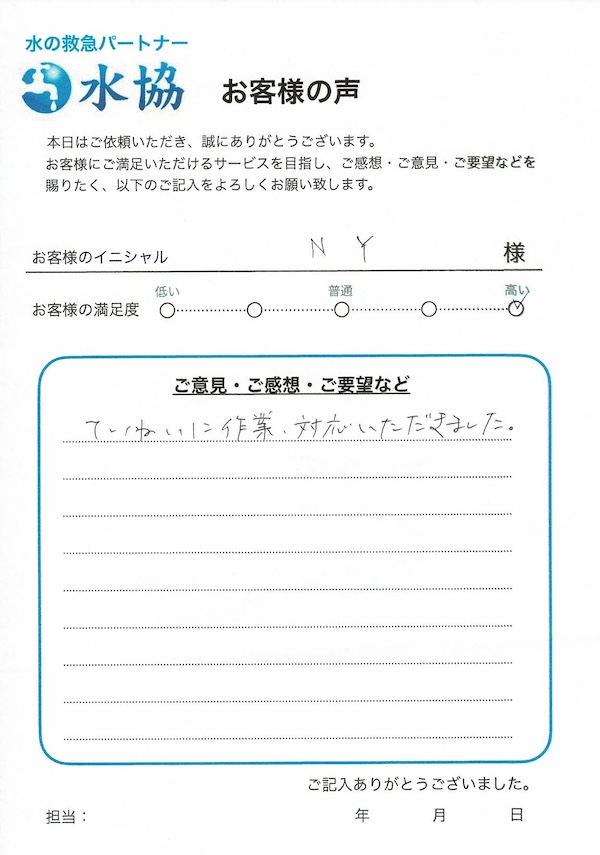 水の救急パートナー
水協 お客様の声
本日はご依頼いただき、誠にありがとうございます。
お客様にご満足いただけるサービスを目指し、ご感想・ご意見・ご要望などを
賜りたく、以下のご記入をよろしくお願い致します。
お客様のイニシャル N Y 様
低い 普通 高い
お客様の満足度
ご意見・ご感想・ご要望など
ていねいに作業、対応いただきました。
ご記入ありがとうございました。
担当： 年 月 日